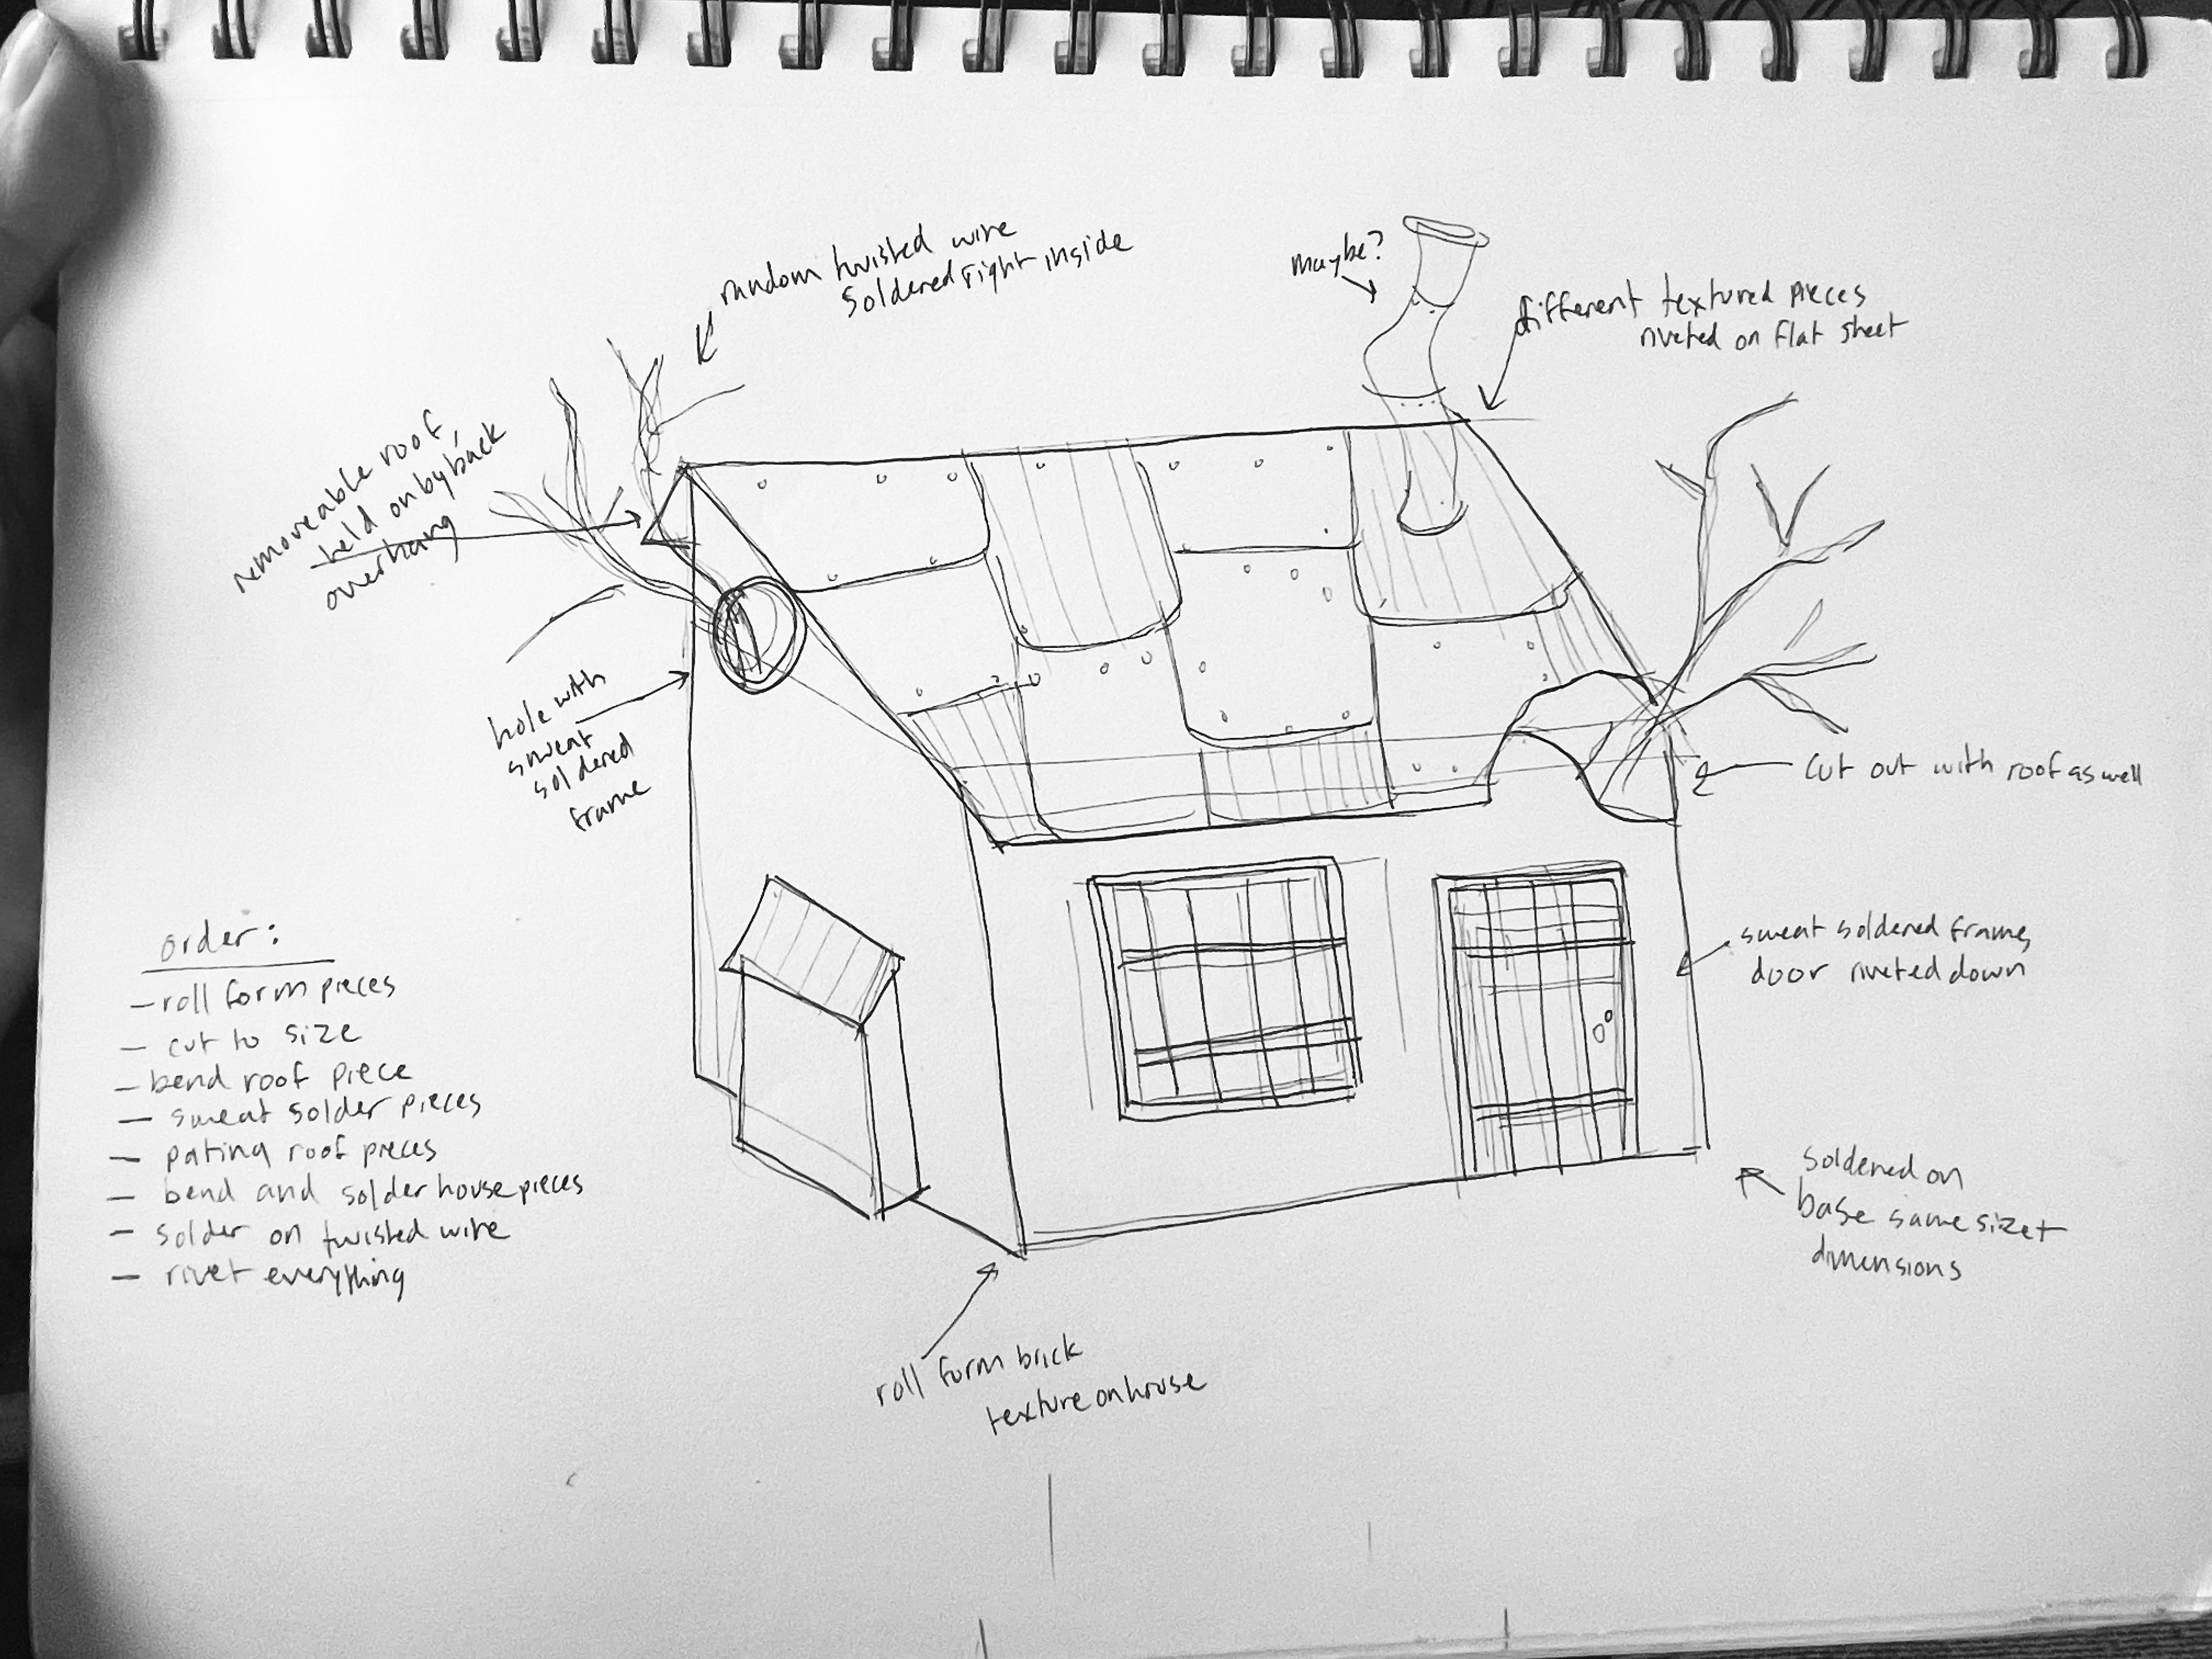 random twisted wire
soldered right inside
maybe?
different textured pieces
riveted on flat sheet
removeable roof,
held on by back
overhang
hole with
sweat
soldered
frame
cut out with roof as well
sweat soldered frames
door riveted down
order:
- roll form pieces
- cut to size
- bend roof piece
- sweat solder pieces
- patina roof pieces
- bend and solder house pieces
- solder on twisted wire
- rivet everything
soldered on
base same size +
dimensions
roll form brick
texture on house